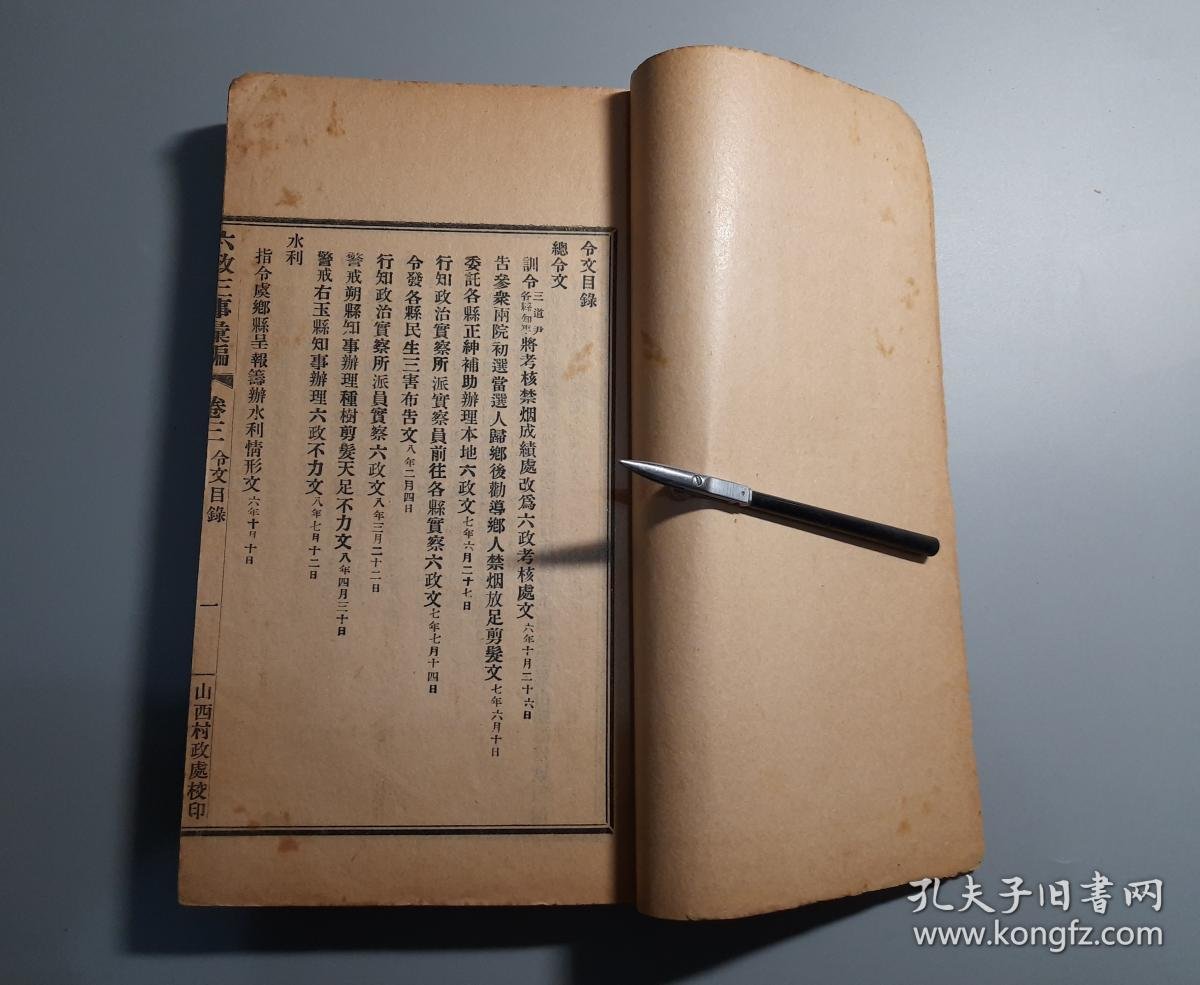 令文目錄
總令文
訓令三道尹各縣知事將考核禁烟成績處改爲六政考核處文六年十月二十六日
告參衆兩院初選當選人歸鄉後勸導鄉人禁烟放足剪髮文七年六月十日
委託各縣正紳補助辦理本地六政文七年六月二十七日
行知政治實察所派實察員前往各縣實察六政文七年七月十四日
令發各縣民生三害布告文八年二月四日
行知政治實察所派員實察六政文八年三月二十二日
警戒朔縣知事辦理種樹剪髮天足不力文八年四月三十日
警戒右玉縣知事辦理六政不力文八年七月十二日
水利
指令虞鄉縣呈報籌辦水利情形文六年十月十日
六政三事彙編 卷三 令文目錄 一 山西村政處校印
孔夫子旧书网
www.kongfz.com